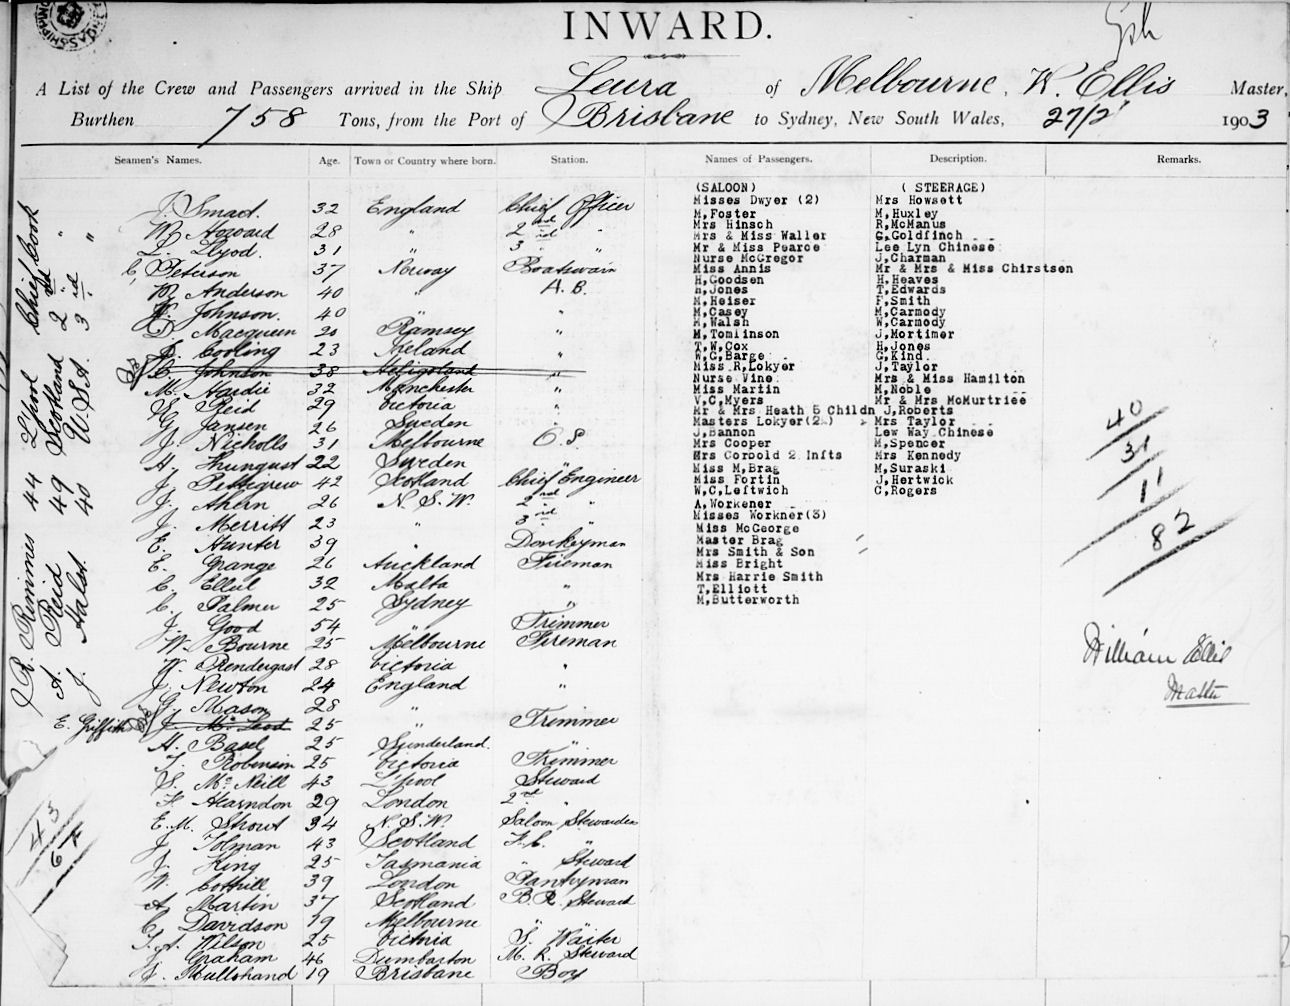 INWARD.
A List of the Crew and Passengers arrived in the Ship Leura of Melbourne, W. Ellis Master,
Burthen 758 Tons, from the Port of Brisbane to Sydney, New South Wales, 27/2 1903
Seamen's Names. Age. Town or Country where born. Station. Names of Passengers. Description. Remarks.
J. Smart. 32 England Chief Officer
W. Howard 28 " 2nd "
L. Llyod. 31 " 3rd "
C. Peterson 37 Norway Boatswain
W. Anderson 40 " A.B.
Johnson. 40 " "
D. Macqueen 20 Ramsey "
Cooling 23 Ireland "
C. Johnson 38 Heligoland "
M. Hardie 32 Manchester "
Reid 29 Victoria "
G. Jansen 26 Sweden "
J. Nicholls 31 Melbourne O.S.
A. 22 Sweden "
J. Pettigrew 42 Scotland Chief Engineer
J. Ahern 26 N.S.W. 2nd "
J. Merritt 23 " 3rd "
E. Hunter 39 " Donkeyman
E. Grange 26 Auckland Fireman
C. Ellul 32 Malta "
C. Palmer 25 Sydney "
J. Good 54 " Trimmer
W. Bourne 25 Melbourne Fireman
W. Prendergast 28 Victoria "
J. Newton 24 England "
G. Mason 28 "
J. McLeod 25 " Trimmer
E. Griffith
H. Basel 25 Sunderland. "
T. Robinson 25 Victoria Trimmer
S. McNeill 43 L'pool Steward
F. Hearndon 29 London 2nd "
E.M. Strout 34 N.S.W. Saloon Stewardess
J. Tolman 43 Scotland F.C. "
J. King 25 Tasmania " Steward
W. Cothill 39 London Pantryman
A. Martin 37 Scotland B.R. Steward
C. Davidson 19 Melbourne " "
T.A. Wilson 25 Victoria S. Waiter
J. Graham 46 Dumbarton M.R. Steward
J. Mullshand 19 Brisbane Boy
J.R. Rimmer 44 L'pool Chief Cook
A. Reid 49 Scotland 2nd "
J. Halst. 40 U.S.A. 3rd "
43
(SALOON)
Misses Dwyer (2)
M,Foster
Mrs Hinsch
Mrs & Miss Waller
Mr & Miss Pearce
Nurse McGregor
Miss Annis
H,Goodsen
H,Jones
M,Heiser
M,Casey
M,Walsh
M,Tomlinson
T,W,Cox
W,G,Barge
Miss R,Lokyer
Nurse Vine
Miss Martin
V,C,Myers
Mr & Mrs Heath 5 Childn
Masters Lokyer(2)
J,Bannon
Mrs Cooper
Mrs Corbold 2 Infts
Miss M,Brag
Miss Fortin
W,C,Leftwich
A,Workener
Misses Workner(3)
Miss McGeorge
Master Brag
Mrs Smith & Son
Miss Bright
Mrs Harrie Smith
T,Elliott
M,Butterworth
( STEERAGE)
Mrs Howsett
M,Huxley
R,McManus
G,Goldfinch
Lee Lyn Chinese
J,Charman
Mr & Mrs & Miss Chirstsen
H,Heaves
T,Edwards
F,Smith
M,Carmody
W,Carmody
J,Mortimer
H,Jones
G,Kind
J,Taylor
Mrs & Miss Hamilton
M,Noble
Mr & Mrs McMurtriee
J,Roberts
Mrs Taylor
Lew Way Chinese
M,Spencer
Mrs Kennedy
M,Suraski
J,Hertwick
C,Rogers
40
31
11
82
William Ellis
Master